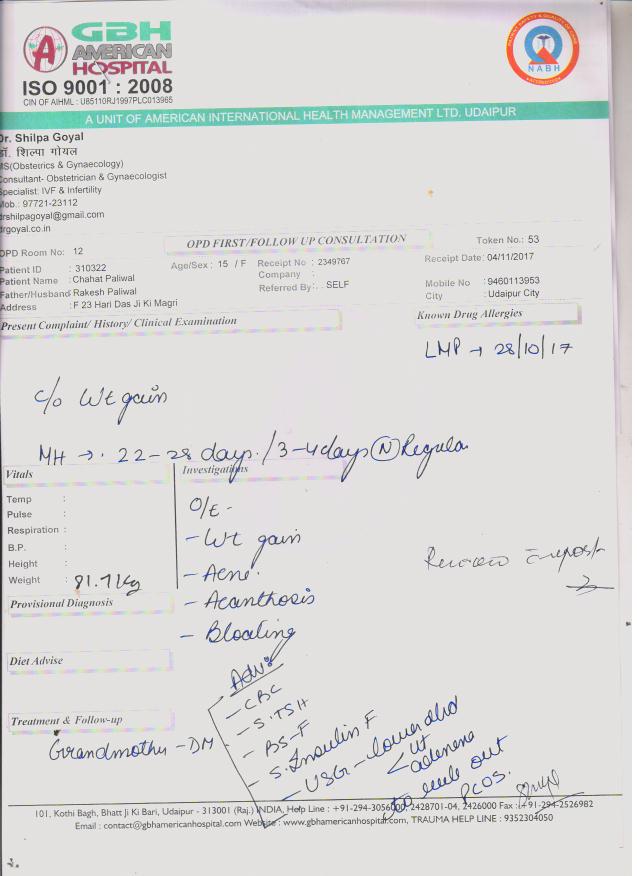 GBH
AMERICAN
HOSPITAL
ISO 9001 : 2008
CIN OF AIHML : U85110RJ1997PLC013965
NABH
A UNIT OF AMERICAN INTERNATIONAL HEALTH MANAGEMENT LTD. UDAIPUR
Dr. Shilpa Goyal
डॉ. शिल्पा गोयल
MS(Obstetrics & Gynaecology)
Consultant- Obstetrician & Gynaecologist
Specialist: IVF & Infertility
Mob.: 97721-23112
drshilpagoyal@gmail.com
drgoyal.co.in
OPD FIRST/FOLLOW UP CONSULTATION
Token No.: 53
OPD Room No: 12
Patient ID : 310322
Age/Sex : 15 / F
Receipt No : 2349767
Receipt Date: 04/11/2017
Patient Name : Chahat Paliwal
Company :
Father/Husband: Rakesh Paliwal
Referred By: . SELF
Mobile No : 9460113953
Address : F 23 Hari Das Ji Ki Magri
City : Udaipur City
Present Complaint/ History/ Clinical Examination
Known Drug Allergies
LMP → 28/10/17
c/o Wt gain
MH → . 22-28 days. / 3-4days (N) Regular
Vitals
Investigations
Temp :
Pulse :
Respiration :
B.P. :
Height :
Weight : 81.71kg
O/E -
- Wt gain
- Acne.
- Acanthosis
- Bloating
Provisional Diagnosis
Diet Advise
Treatment & Follow-up
Grandmother - DM
Adv:
- CBC
- S.TSH
- BS-F
- S.Insulin F
- USG - lower abd
Ut
adenexa
to rule out
PCOS.
101, Kothi Bagh, Bhatt Ji Ki Bari, Udaipur - 313001 (Raj.) INDIA, Help Line : +91-294-3056000, 2428701-04, 2426000 Fax : +91-294-2526982
Email : contact@gbhamericanhospital.com Website : www.gbhamericanhospital.com, TRAUMA HELP LINE : 9352304050